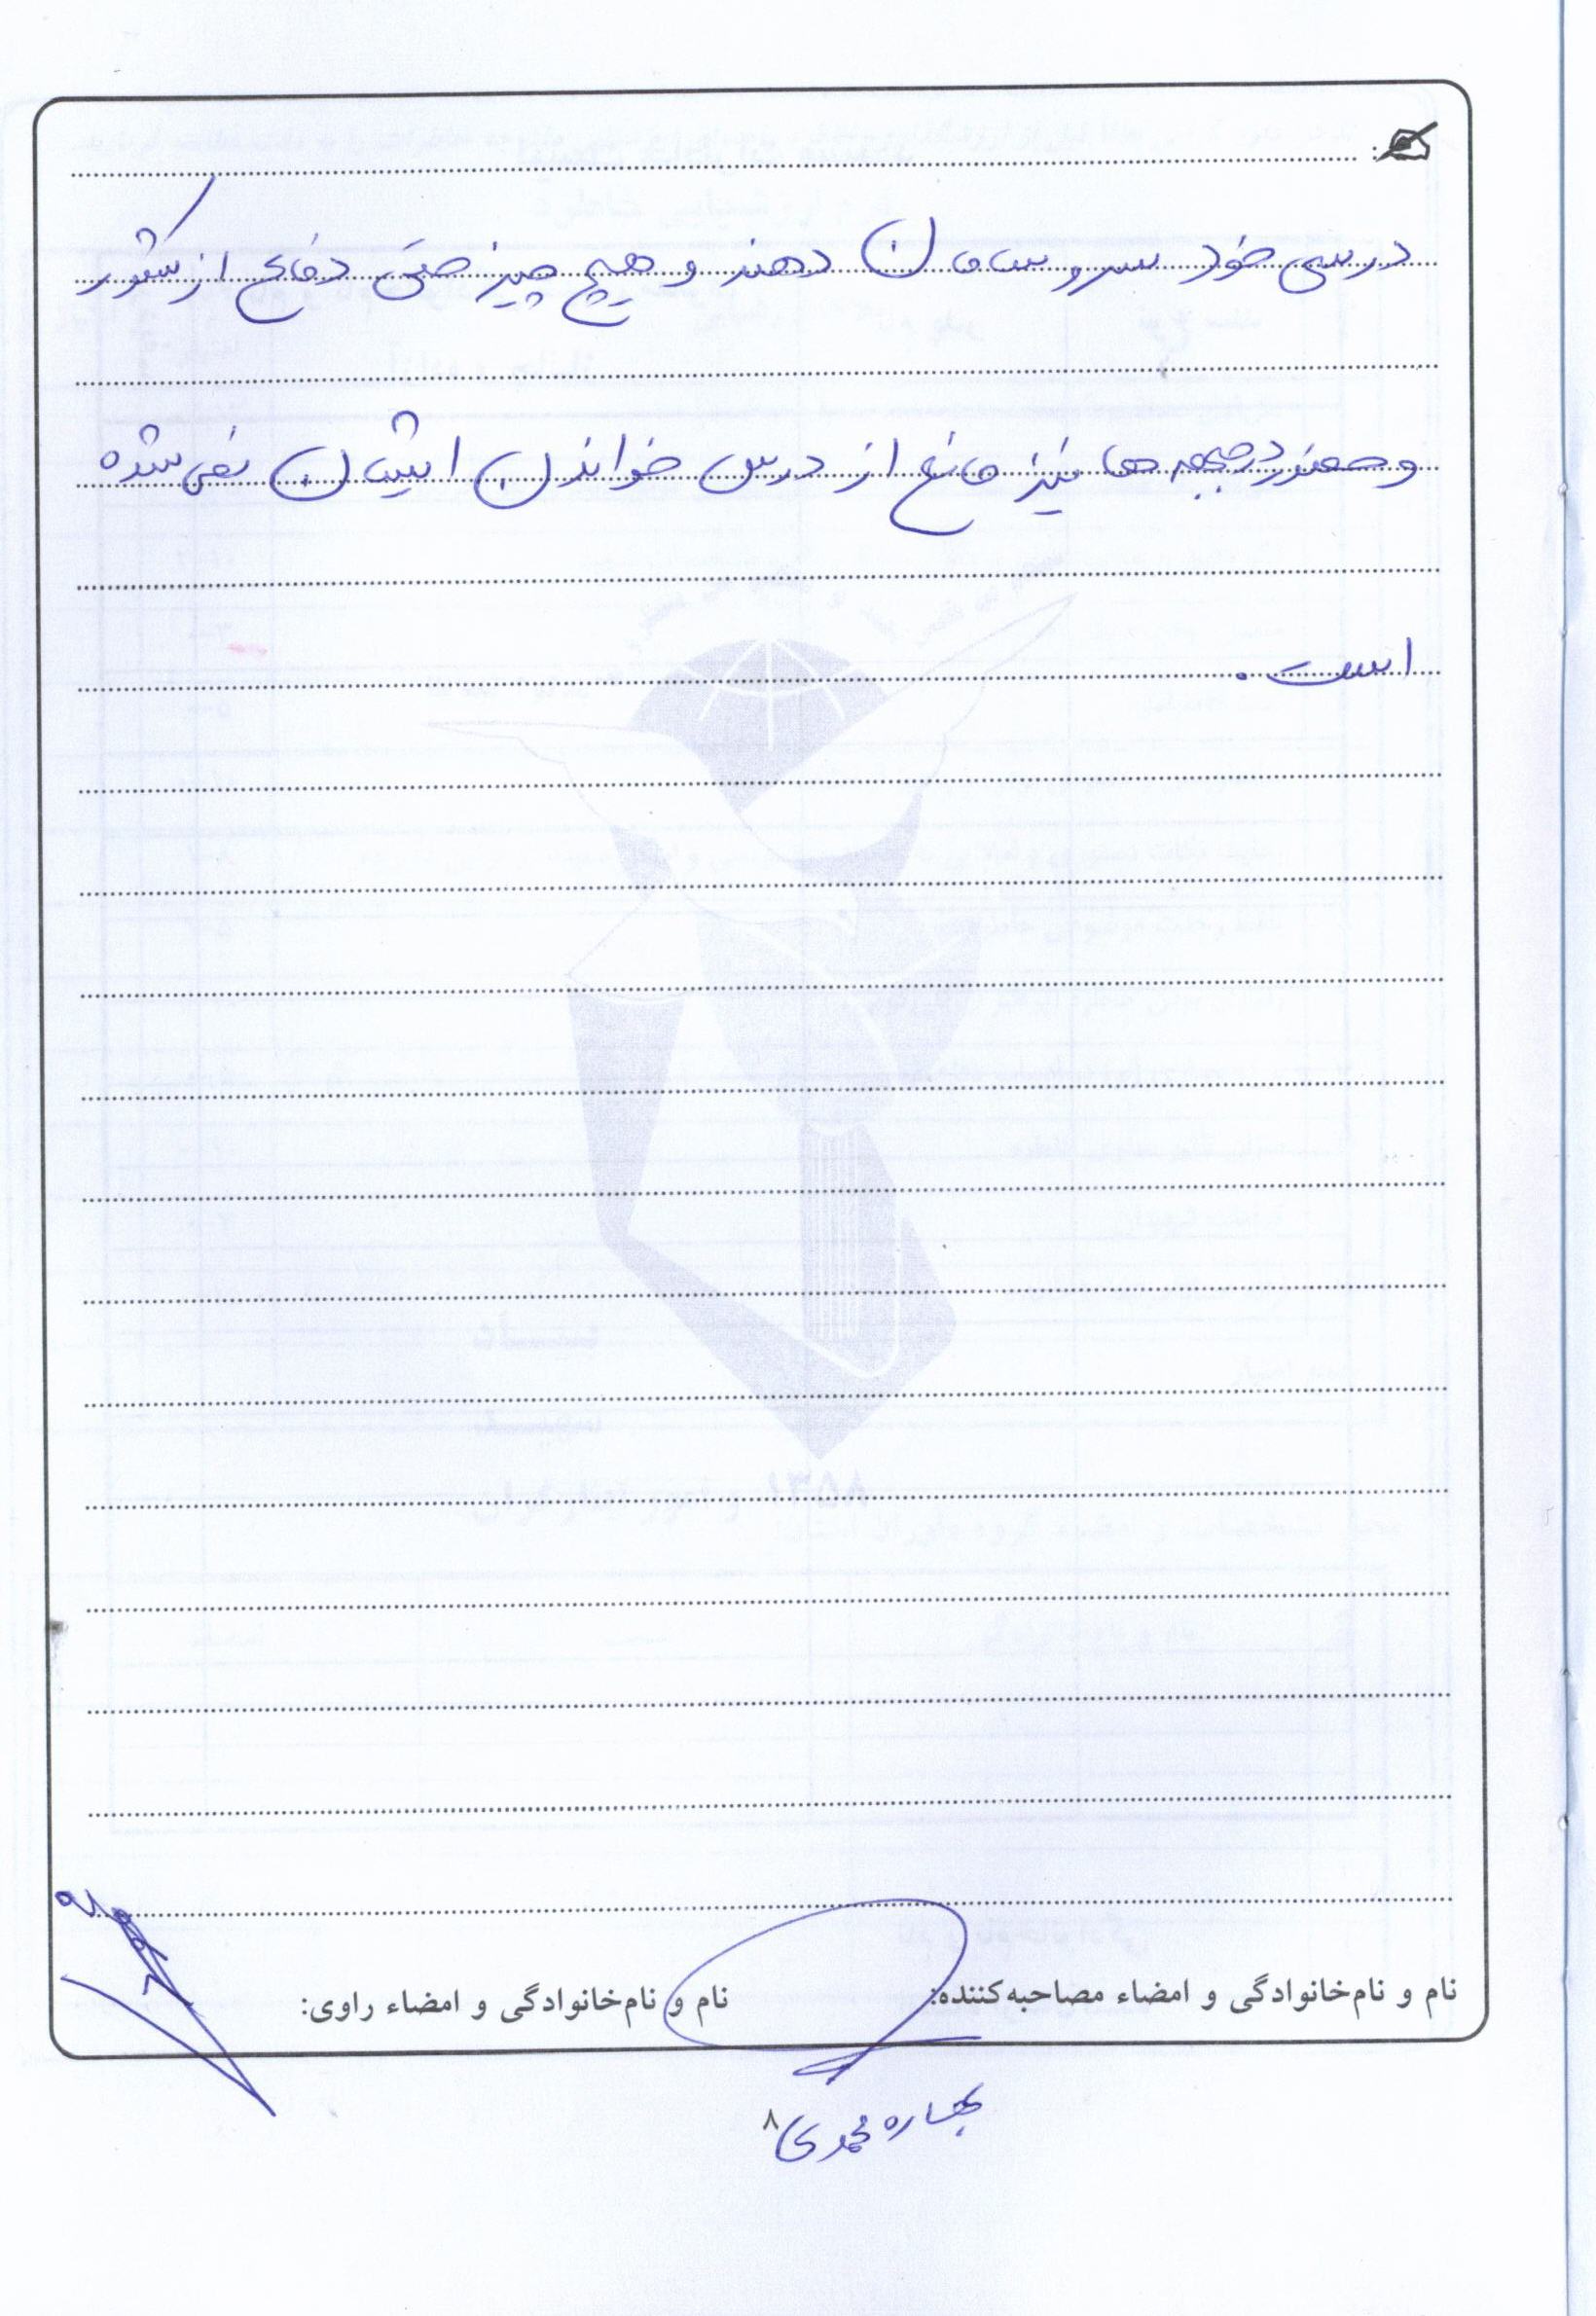 درسی خود سروسامان دهند و هیچ چیز حتی دفاع از کشور
و حضور در جبهه ها نیز مانع از درس خواندن ایشان نمی شده
است.
نام و نام‌خانوادگی و امضاء مصاحبه‌کننده:
نام و نام‌خانوادگی و امضاء راوی:
بهاره محمدی
۸
۱۳۵۸